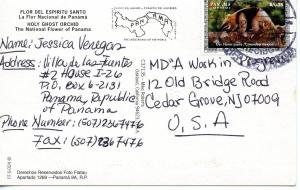 FLOR DEL ESPIRITU SANTO
La Flor Nacional de Panamá
HOLY GHOST ORCHID
The National Flower of Panama
PANAMA
Name: Jessica Venegas
Address: Villa de las Fuentes
#2 HOUSE I-26
P.O. BOX 6-2131
Panama, Republic
of Panama
Phone Number: (507) 2367476
Fax: (507) 2367476
MD'A Watkin
12 Old Bridge Road
Cedar Grove, NJ 07009
U.S.A
Derechos Reservados Foto Flatau
Apartado 1269 - Panamá 9A, R.P.